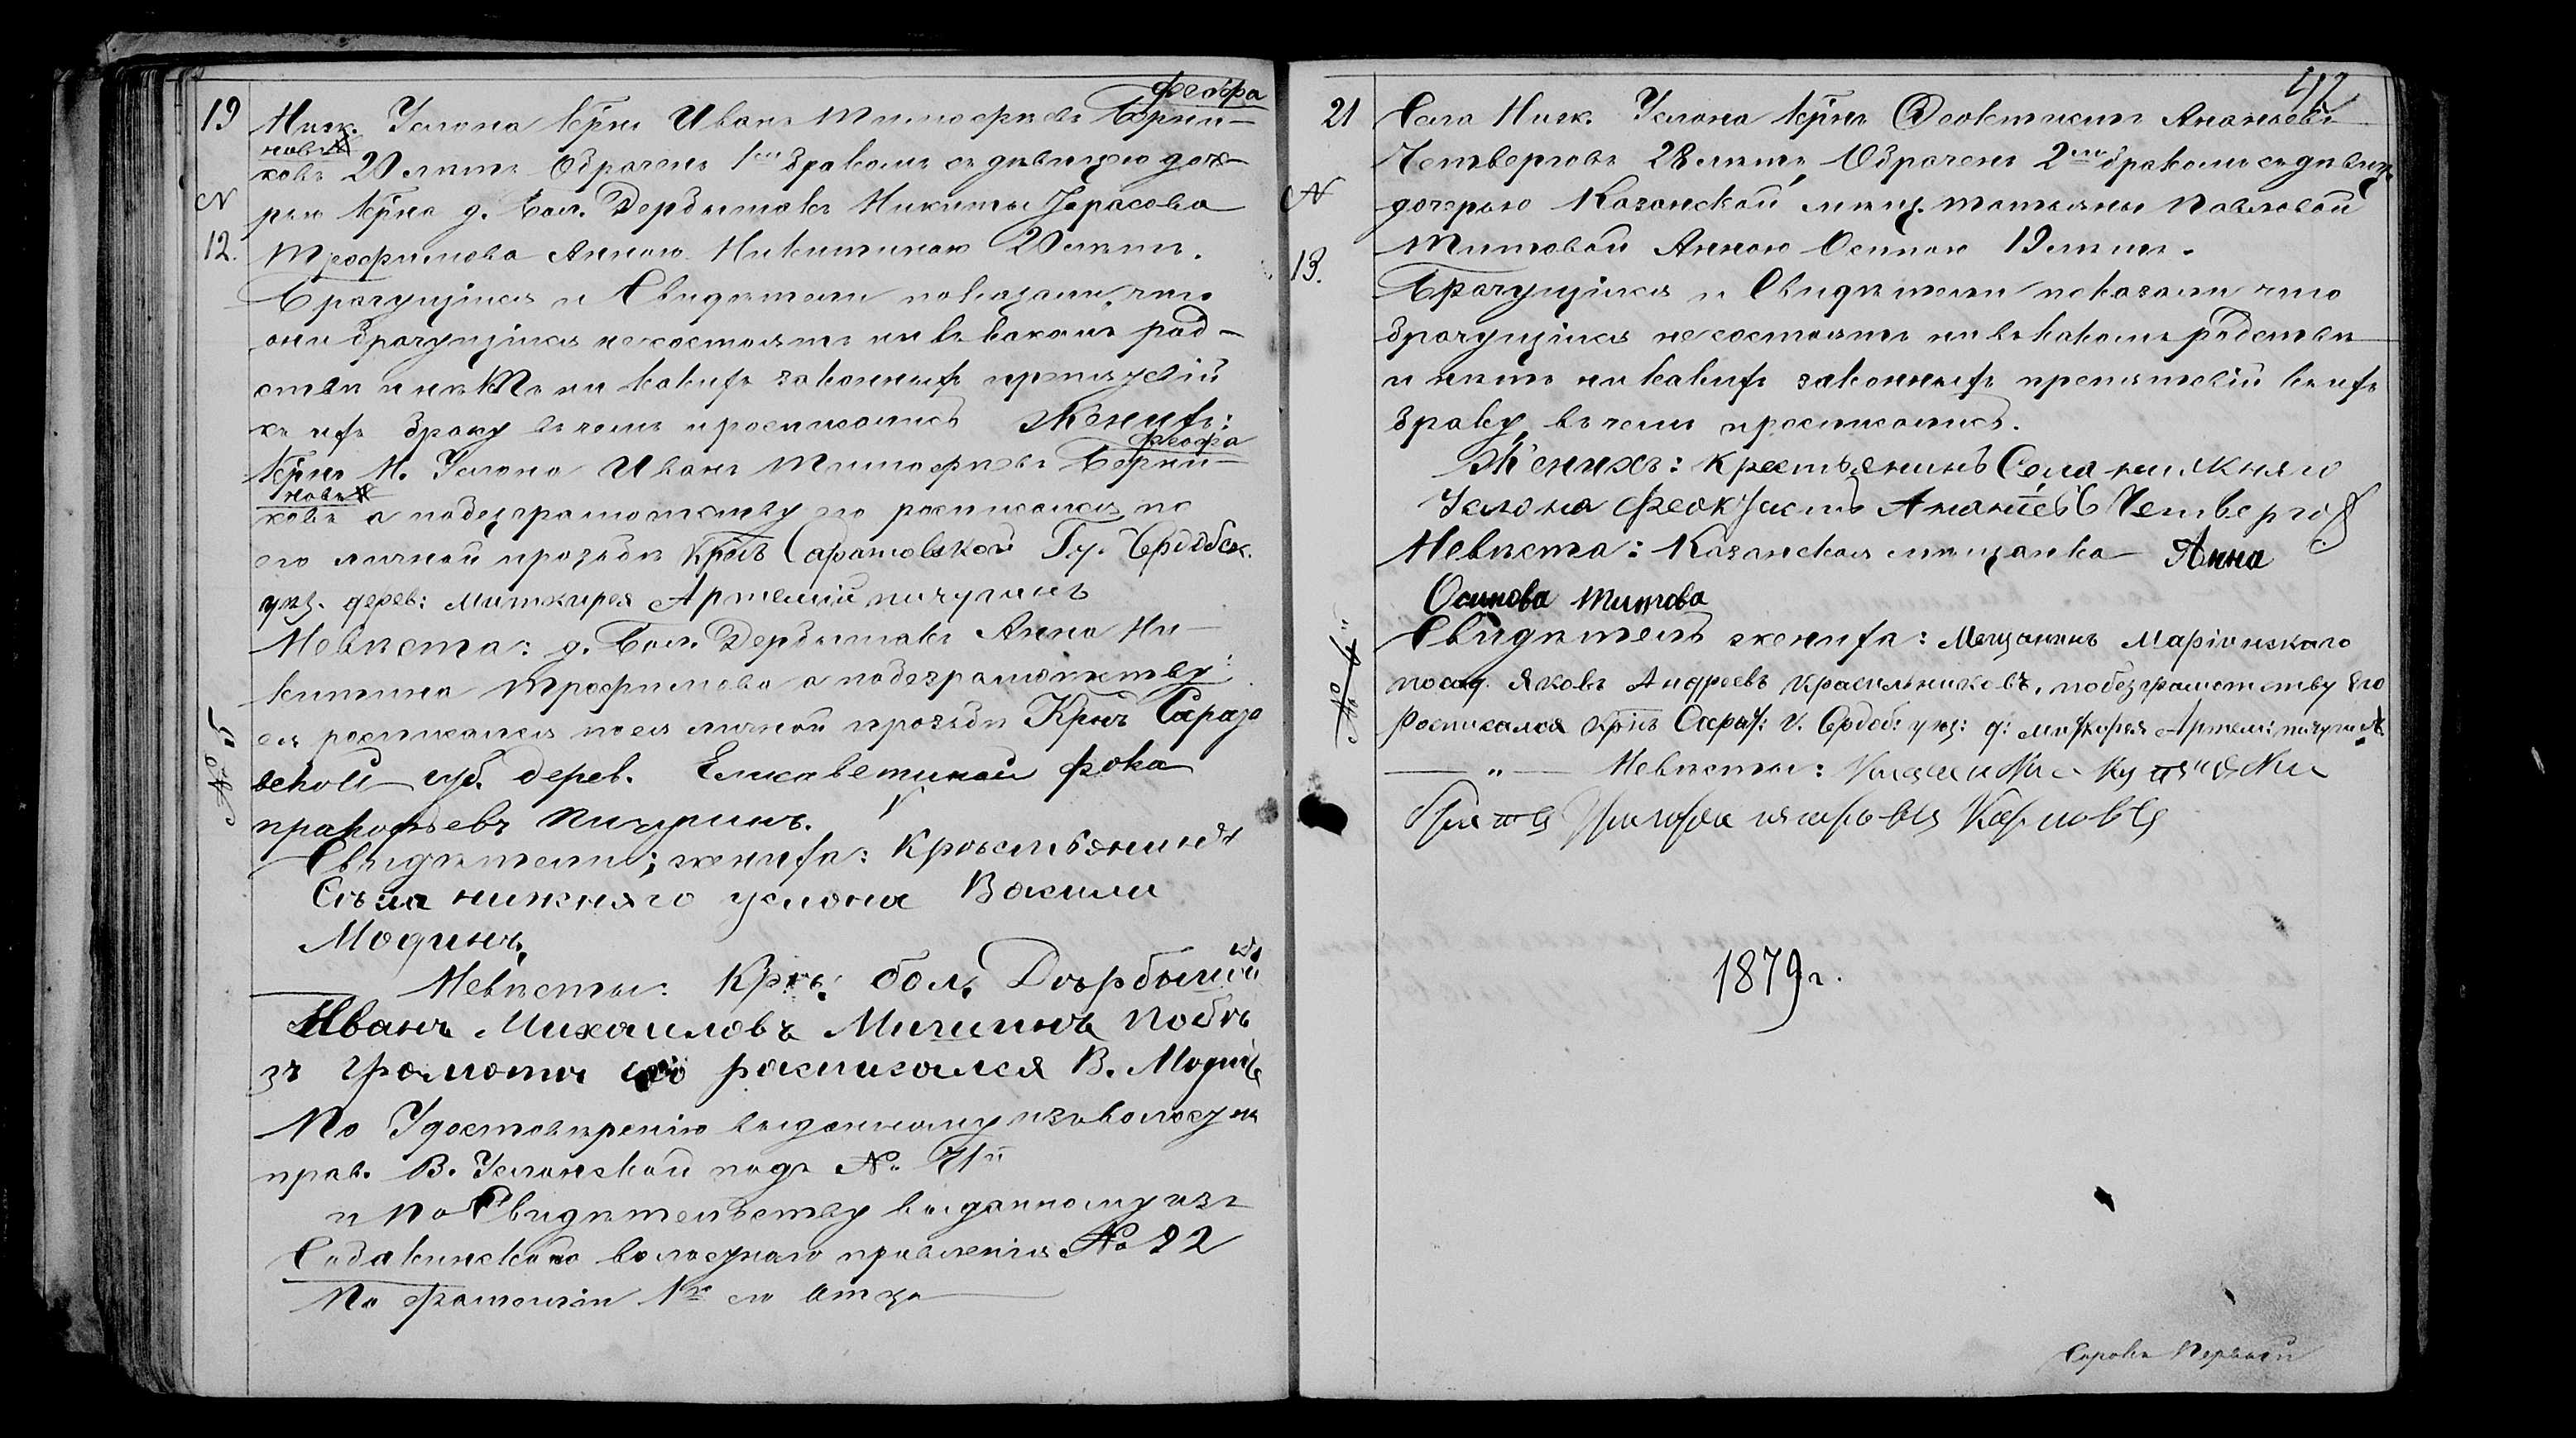 Феофа
19 Ниж. Услона кр̃нъ Иванъ Тимофеевъ Берни-
новъ
ковъ 20 лѣтъ Обраченъ 1мъ бракомъ съ дѣвицею доч-
N рью кр̃на д. Бол. Дербышакъ Никиты Герасова
12. Трофимова Анною Никитиною 20 лѣтъ.
Брачущіися и Свидѣтели показали, что
они брачущіися не состоятъ ни въ какомъ род-
ствѣ и нѣтъ ни какихъ законныхъ препятствій
къ ихъ браку въ чемъ и росписались Женихъ:
Феофа
Кр̃нъ Н. Услона Иванъ Тимофеевъ Берни-
новъ
ковъ а по безграмотству его росписался по
его личной прозьбѣ Кр̃нъ Саратовской Гу. Сердобск.
уѣз. дерев: Миткирея Артемий пичугинъ
Невѣста: д. Бол. Дербышакъ Анна Ни-
китина Трофимова а по безграмотству
ея росписался по ея личной прозьбѣ Крнъ Сарато
вской губ. дерев. Елисаветиной фока
№ 5
прокофьевъ Пичугинъ.
Свидѣтели; жениха: Кросьтьянинъ
Съла нижняго услона Васили
Модинъ,
Невѣсты: Крнъ: бол. Доърбышки
Иванъ Михаиловъ Мишинъ Побъ
зъ громоты его росписался В. Модинъ
По Удостовѣренію выданному изъ волостн
прав. В. Услонской подъ № 71й
и По Свидѣтельству выданному изъ
Кадакинскаго волостнаго правленія № 92
По фамиліи 1го его отца
412
21 Села Ниж. Услона кр̃нъ Ѳеоктистъ Ананьевъ
Четверговъ 28 лѣтъ, Обраченъ 2мъ бракомъ съ дѣвиц.
N дочерью Казанской мѣщ. Татьяны Павловой
Титовой Анною Осиповою 19 лѣтъ.
13.
Брачущіися и Свидѣтели показали что
брачущіися не состоятъ ни въ какомъ родствѣ
и нѣтъ ни какихъ законныхъ препятствій къ ихъ
браку, въ чемъ и росписались.
Женихъ: Крестьянинъ Села нижняго
Услона Феоктистъ Ананьевъ Четвергов
Невѣста: Казанская мѣщанка Анна
Осипова Титова
№ 4
Свидѣтель жениха: Мещанинъ Маріинскаго
посад. Яковъ Андреевъ Красильниковъ, по безграмотству Его
Росписался крнъ Сарат: г. Сердоб: уѣз: д: миткирея Артем: пичугинъ
— „ — Невѣсты:
1879 г.
Сорокъ Первый